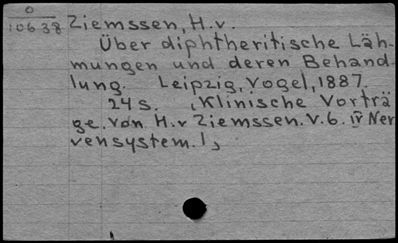 0
10638 Ziemssen, H.v.
Über diphtheritische Läh-
mungen und deren Behand-
lung. Leipzig, Vogel, 1887.
24 S. (Klinische Vorträ
ge. von H.v Ziemssen. V. 6. IV Ner
vensystem. 1,